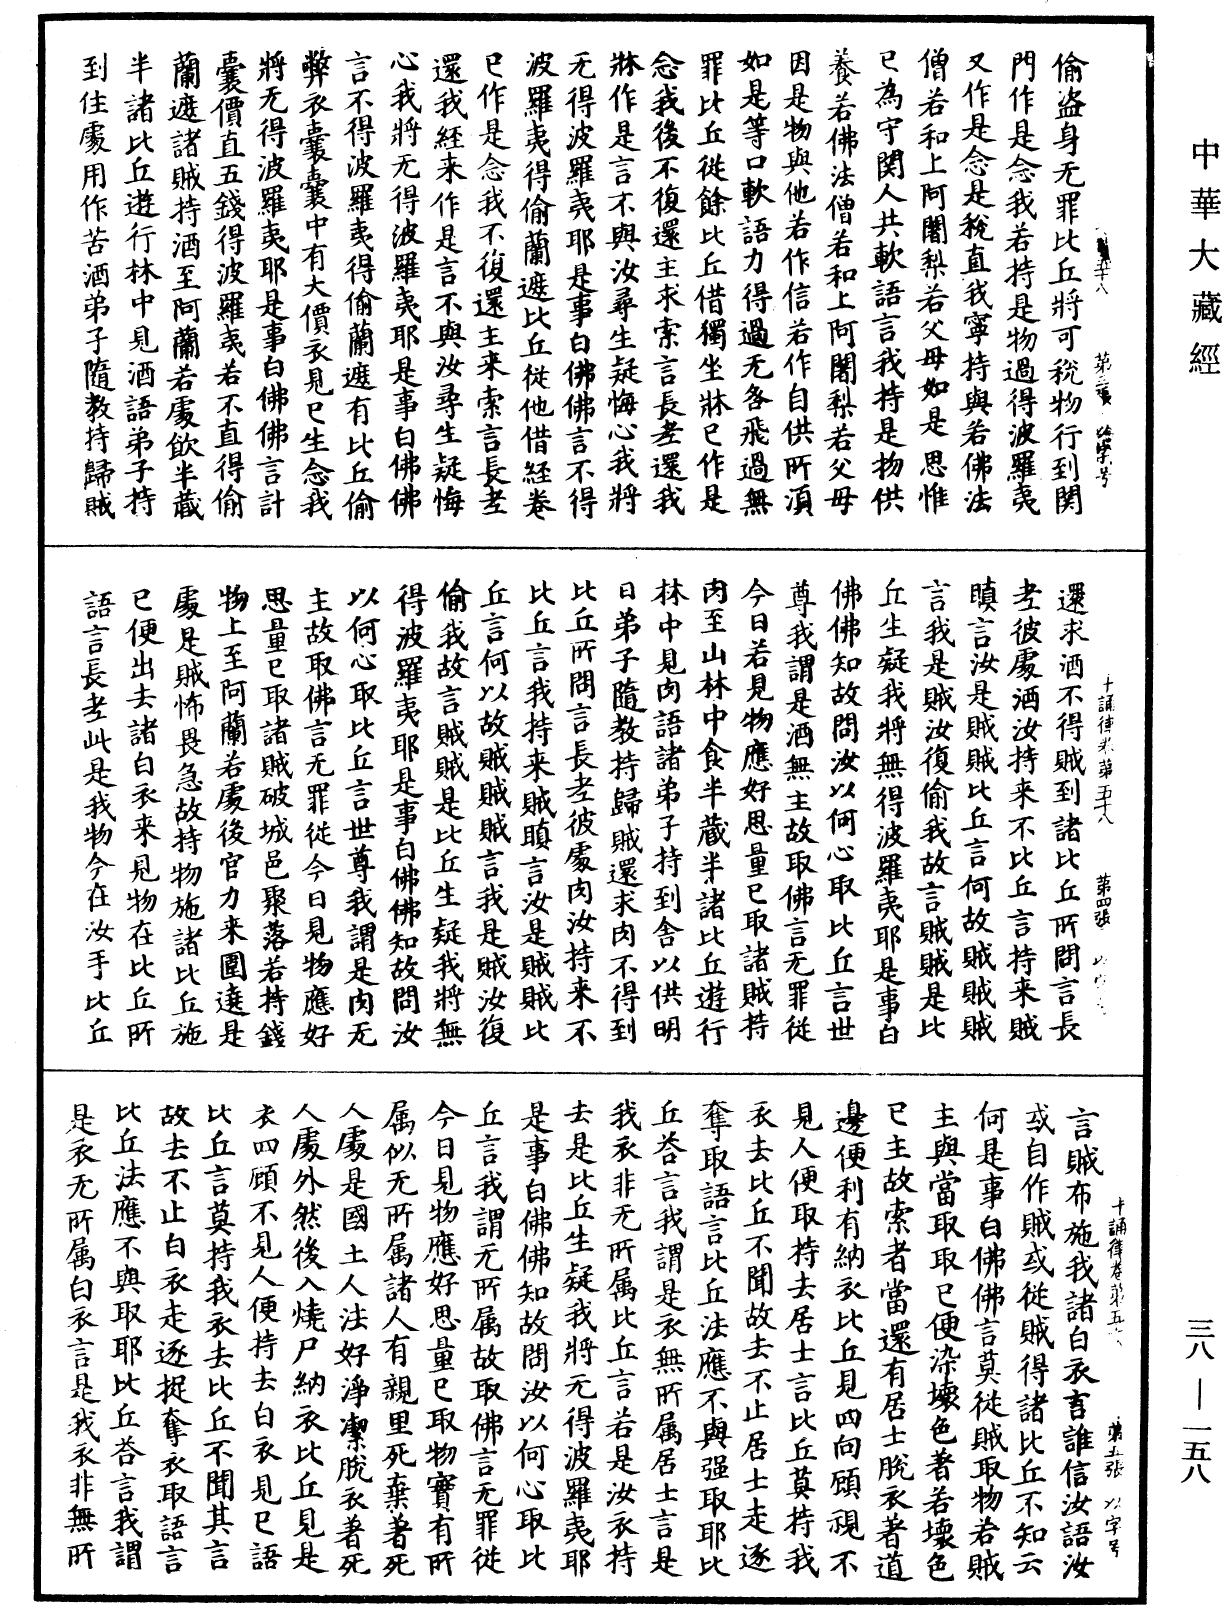 中華大藏經
偷盜身无罪比丘將可稅物行到関
門作是念我若持是物過得波羅夷
又作是念是稅直我寧持與若佛法
僧若和上阿闍梨若父母如是思惟
已為守関人共軟語言我持是物供
養若佛法僧若和上阿闍梨若父母
因是物與他若作信若作自供所湏
如是等口軟語力得過无咎飛過無
罪比丘從餘比丘借獨坐牀已作是
念我後不復還主求索言長老還我
牀作是言不與汝尋生疑悔心我將
无得波羅夷耶是事白佛佛言不得
波羅夷得偷蘭遮比丘從他借經卷
已作是念我不復還主来索言長老
還我經来作是言不與汝尋生疑悔
心我將无得波羅夷耶是事白佛佛
言不得波羅夷得偷蘭遮有比丘偷
弊衣囊囊中有大價衣見已生念我
將无得波羅夷耶是事白佛佛言計
囊價直五錢得波羅夷若不直得偷
蘭遮諸賊持酒至阿蘭若處飲半藏
半諸比丘遊行林中見酒語弟子持
到住處用作苦酒弟子隨教持歸賊
十誦律卷第五十八 第四張
還求酒不得賊到諸比丘所問言長
老彼處酒汝持来不比丘言持来賊
瞋言汝是賊賊比丘言何故賊賊賊
言我是賊汝復偷我故言賊賊是比
丘生疑我將無得波羅夷耶是事白
佛佛知故問汝以何心取比丘言世
尊我謂是酒無主故取佛言无罪從
今日若見物應好思量已取諸賊持
肉至山林中食半藏半諸比丘遊行
林中見肉語諸弟子持到舍以供明
日弟子隨教持歸賊還求肉不得到
比丘所問言長老彼處肉汝持来不
比丘言我持来賊瞋言汝是賊賊比
丘言何以故賊賊賊言我是賊汝復
偷我故言賊賊是比丘生疑我將無
得波羅夷耶是事白佛佛知故問汝
以何心取比丘言世尊我謂是肉无
主故取佛言无罪從今日見物應好
思量已取諸賊破城邑聚落若持錢
物上至阿蘭若處後官力来圍遶是
處是賊怖畏急故持物施諸比丘施
已便出去諸白衣来見物在比丘所
語言長老此是我物今在汝手比丘
十誦律卷第五 第五張 以字号
言賊布施我諸白衣言誰信汝語汝
或自作賊或従賊得諸比丘不知云
何是事白佛佛言莫従賊取物若賊
主與當取取已便染壞色著若壞色
已主故索者當還有居士脫衣著道
邊便利有納衣比丘見四向顧視不
見人便取持去居士言比丘莫持我
衣去比丘不聞故去不止居士走逐
奪取語言比丘法應不與强取耶比
丘荅言我謂是衣無所属居士言是
我衣非无所属比丘言若是汝衣持
去是比丘生疑我將无得波羅夷耶
是事白佛佛知故問汝以何心取比
丘言我謂无所属故取佛言无罪従
今日見物應好思量已取物實有所
属似无所属諸人有親里死棄著死
人處是國土人法好淨潔脫衣著死
人處外然後入燒尸納衣比丘見是
衣四顧不見人便持去白衣見已語
比丘言莫持我衣去比丘不聞其言
故去不止白衣走逐捉奪衣取語言
比丘法應不與取耶比丘荅言我謂
是衣无所属白衣言是我衣非無所
三八—一五八